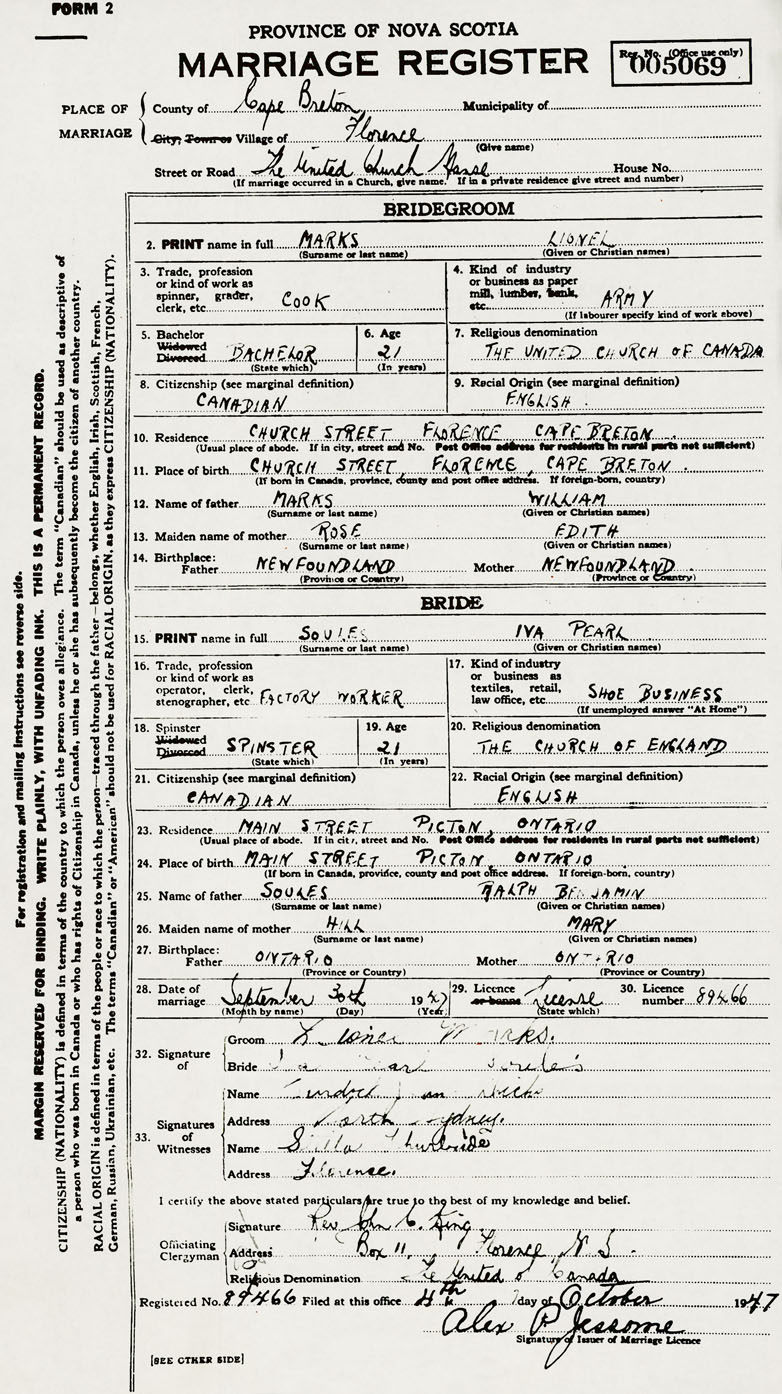 FORM 2
PROVINCE OF NOVA SCOTIA
MARRIAGE REGISTER
Reg. No. (Office use only)
005069
PLACE OF MARRIAGE
County of Cape Breton Municipality of
City, Town or Village of Florence
(Give name)
Street or Road The United Church Manse House No.
(If marriage occurred in a Church, give name. If in a private residence give street and number)
BRIDEGROOM
2. PRINT name in full MARKS LIONEL
(Surname or last name) (Given or Christian names)
3. Trade, profession or kind of work as spinner, grader, clerk, etc. COOK
4. Kind of industry or business as paper mill, lumber, bank, etc. ARMY
(If labourer specify kind of work above)
5. Bachelor Widowed Divorced BACHELOR
(State which)
6. Age 21
(In years)
7. Religious denomination
THE UNITED CHURCH OF CANADA
8. Citizenship (see marginal definition)
CANADIAN
9. Racial Origin (see marginal definition)
ENGLISH.
10. Residence CHURCH STREET FLORENCE CAPE BRETON.
(Usual place of abode. If in city, street and No. Post Office address for residents in rural parts not sufficient)
11. Place of birth CHURCH STREET, FLORENCE, CAPE BRETON.
(If born in Canada, province, county and post office address. If foreign-born, country)
12. Name of father MARKS WILLIAM
(Surname or last name) (Given or Christian names)
13. Maiden name of mother ROSE EDITH
(Surname or last name) (Given or Christian names)
14. Birthplace:
Father NEWFOUNDLAND Mother NEWFOUNDLAND
(Province or Country) (Province or Country)
BRIDE
15. PRINT name in full SOULES IVA PEARL
(Surname or last name) (Given or Christian names)
16. Trade, profession or kind of work as operator, clerk, stenographer, etc FACTORY WORKER
17. Kind of industry or business as textiles, retail, law office, etc. SHOE BUSINESS
(If unemployed answer "At Home")
18. Spinster Widowed Divorced SPINSTER
(State which)
19. Age 21
(In years)
20. Religious denomination
THE CHURCH OF ENGLAND
21. Citizenship (see marginal definition)
CANADIAN
22. Racial Origin (see marginal definition)
ENGLISH
23. Residence MAIN STREET PICTON, ONTARIO
(Usual place of abode. If in city, street and No. Post Office address for residents in rural parts not sufficient)
24. Place of birth MAIN STREET PICTON, ONTARIO
(If born in Canada, province, county and post office address. If foreign-born, country)
25. Name of father SOULES RALPH BENJAMIN
(Surname or last name) (Given or Christian names)
26. Maiden name of mother HILL MARY
(Surname or last name) (Given or Christian names)
27. Birthplace:
Father ONTARIO Mother ONTARIO
(Province or Country) (Province or Country)
28. Date of marriage September 30th 1947
(Month by name) (Day) (Year)
29. Licence or banns License
(State which)
30. Licence number 89466
32. Signature of
Groom Lionel Marks.
Bride
33. Signatures of Witnesses
Name
Address North Sydney.
Name
Address Florence.
I certify the above stated particulars are true to the best of my knowledge and belief.
Officiating Clergyman
Signature Rev John C. King
Address Box 11, Florence N S.
Religious Denomination The United of Canada
Registered No. 89466 Filed at this office 4th day of October 1947
Alex P Jessome
Signature of Issuer of Marriage Licence
[SEE OTHER SIDE]
For registration and mailing instructions see reverse side.
MARGIN RESERVED FOR BINDING. WRITE PLAINLY, WITH UNFADING INK. THIS IS A PERMANENT RECORD.
CITIZENSHIP (NATIONALITY) is defined in terms of the country to which the person owes allegiance. The term "Canadian" should be used as descriptive of
a person who was born in Canada or who has rights of Citizenship in Canada, unless he or she has subsequently become the citizen of another country.
RACIAL ORIGIN is defined in terms of the people or race to which the person—traced through the father—belongs, whether English, Irish, Scottish, French,
German, Russian, Ukrainian, etc. The terms "Canadian" or "American" should not be used for RACIAL ORIGIN, as they express CITIZENSHIP (NATIONALITY).